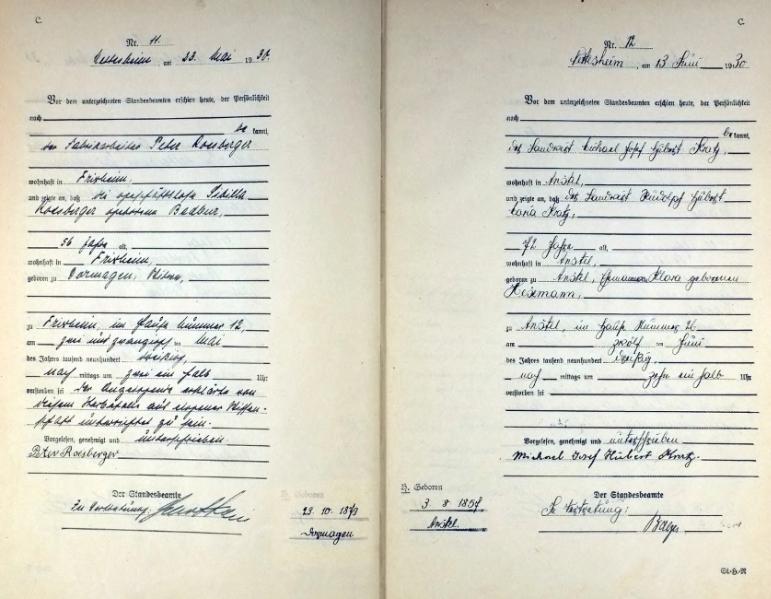 C.
Nr. 11
am 23. Mai 1930.
Vor dem unterzeichneten Standesbeamten erschien heute, der Persönlichkeit
nach
be kannt,
der Fabrikarbeiter Peter Roesberger
wohnhaft in Frixheim,
und zeigte an, daß die geschäftslose Sibilla
Roesberger geborene
56 Jahre alt,
wohnhaft in Frixheim,
geboren zu Dormagen,
zu Frixheim, im Hause Nummer 12,
am zwei und zwanzigsten Mai
des Jahres tausend neunhundert dreißig,
nach mittags um zwei ein halb Uhr
verstorben sei. Der Angeigende erklärte von
diesem Sterbefalle aus eigener Wissen-
schaft unterrichtet zu sein.
Vorgelesen, genehmigt und unterschrieben
Peter Roesberger
Der Standesbeamte
In Vertretung:
H. Geboren
23. 10. 1873
Dormagen
C.
Nr. 12
am 13 Juni 1930
Vor dem unterzeichneten Standesbeamten erschien heute, der Persönlichkeit
nach
be kannt,
der Landwirt Michael Josef Hubert Kratz,
wohnhaft in Anstel,
und zeigte an, daß der Landwirt Rudolph Hubert
Maria Kratz,
72 Jahre alt,
wohnhaft in Anstel,
geboren zu Anstel, Ehemann Klara geborenen
zu Anstel, im Hause Nummer 26
am zwölften Juni
des Jahres tausend neunhundert dreißig,
nach mittags um zehn ein halb Uhr
verstorben sei
Vorgelesen, genehmigt und unterschrieben
Michael Josef Hubert Kratz.
H. Geboren
3 8 1857
Anstel.
Der Standesbeamte
In Vertretung:
St.-H.-R